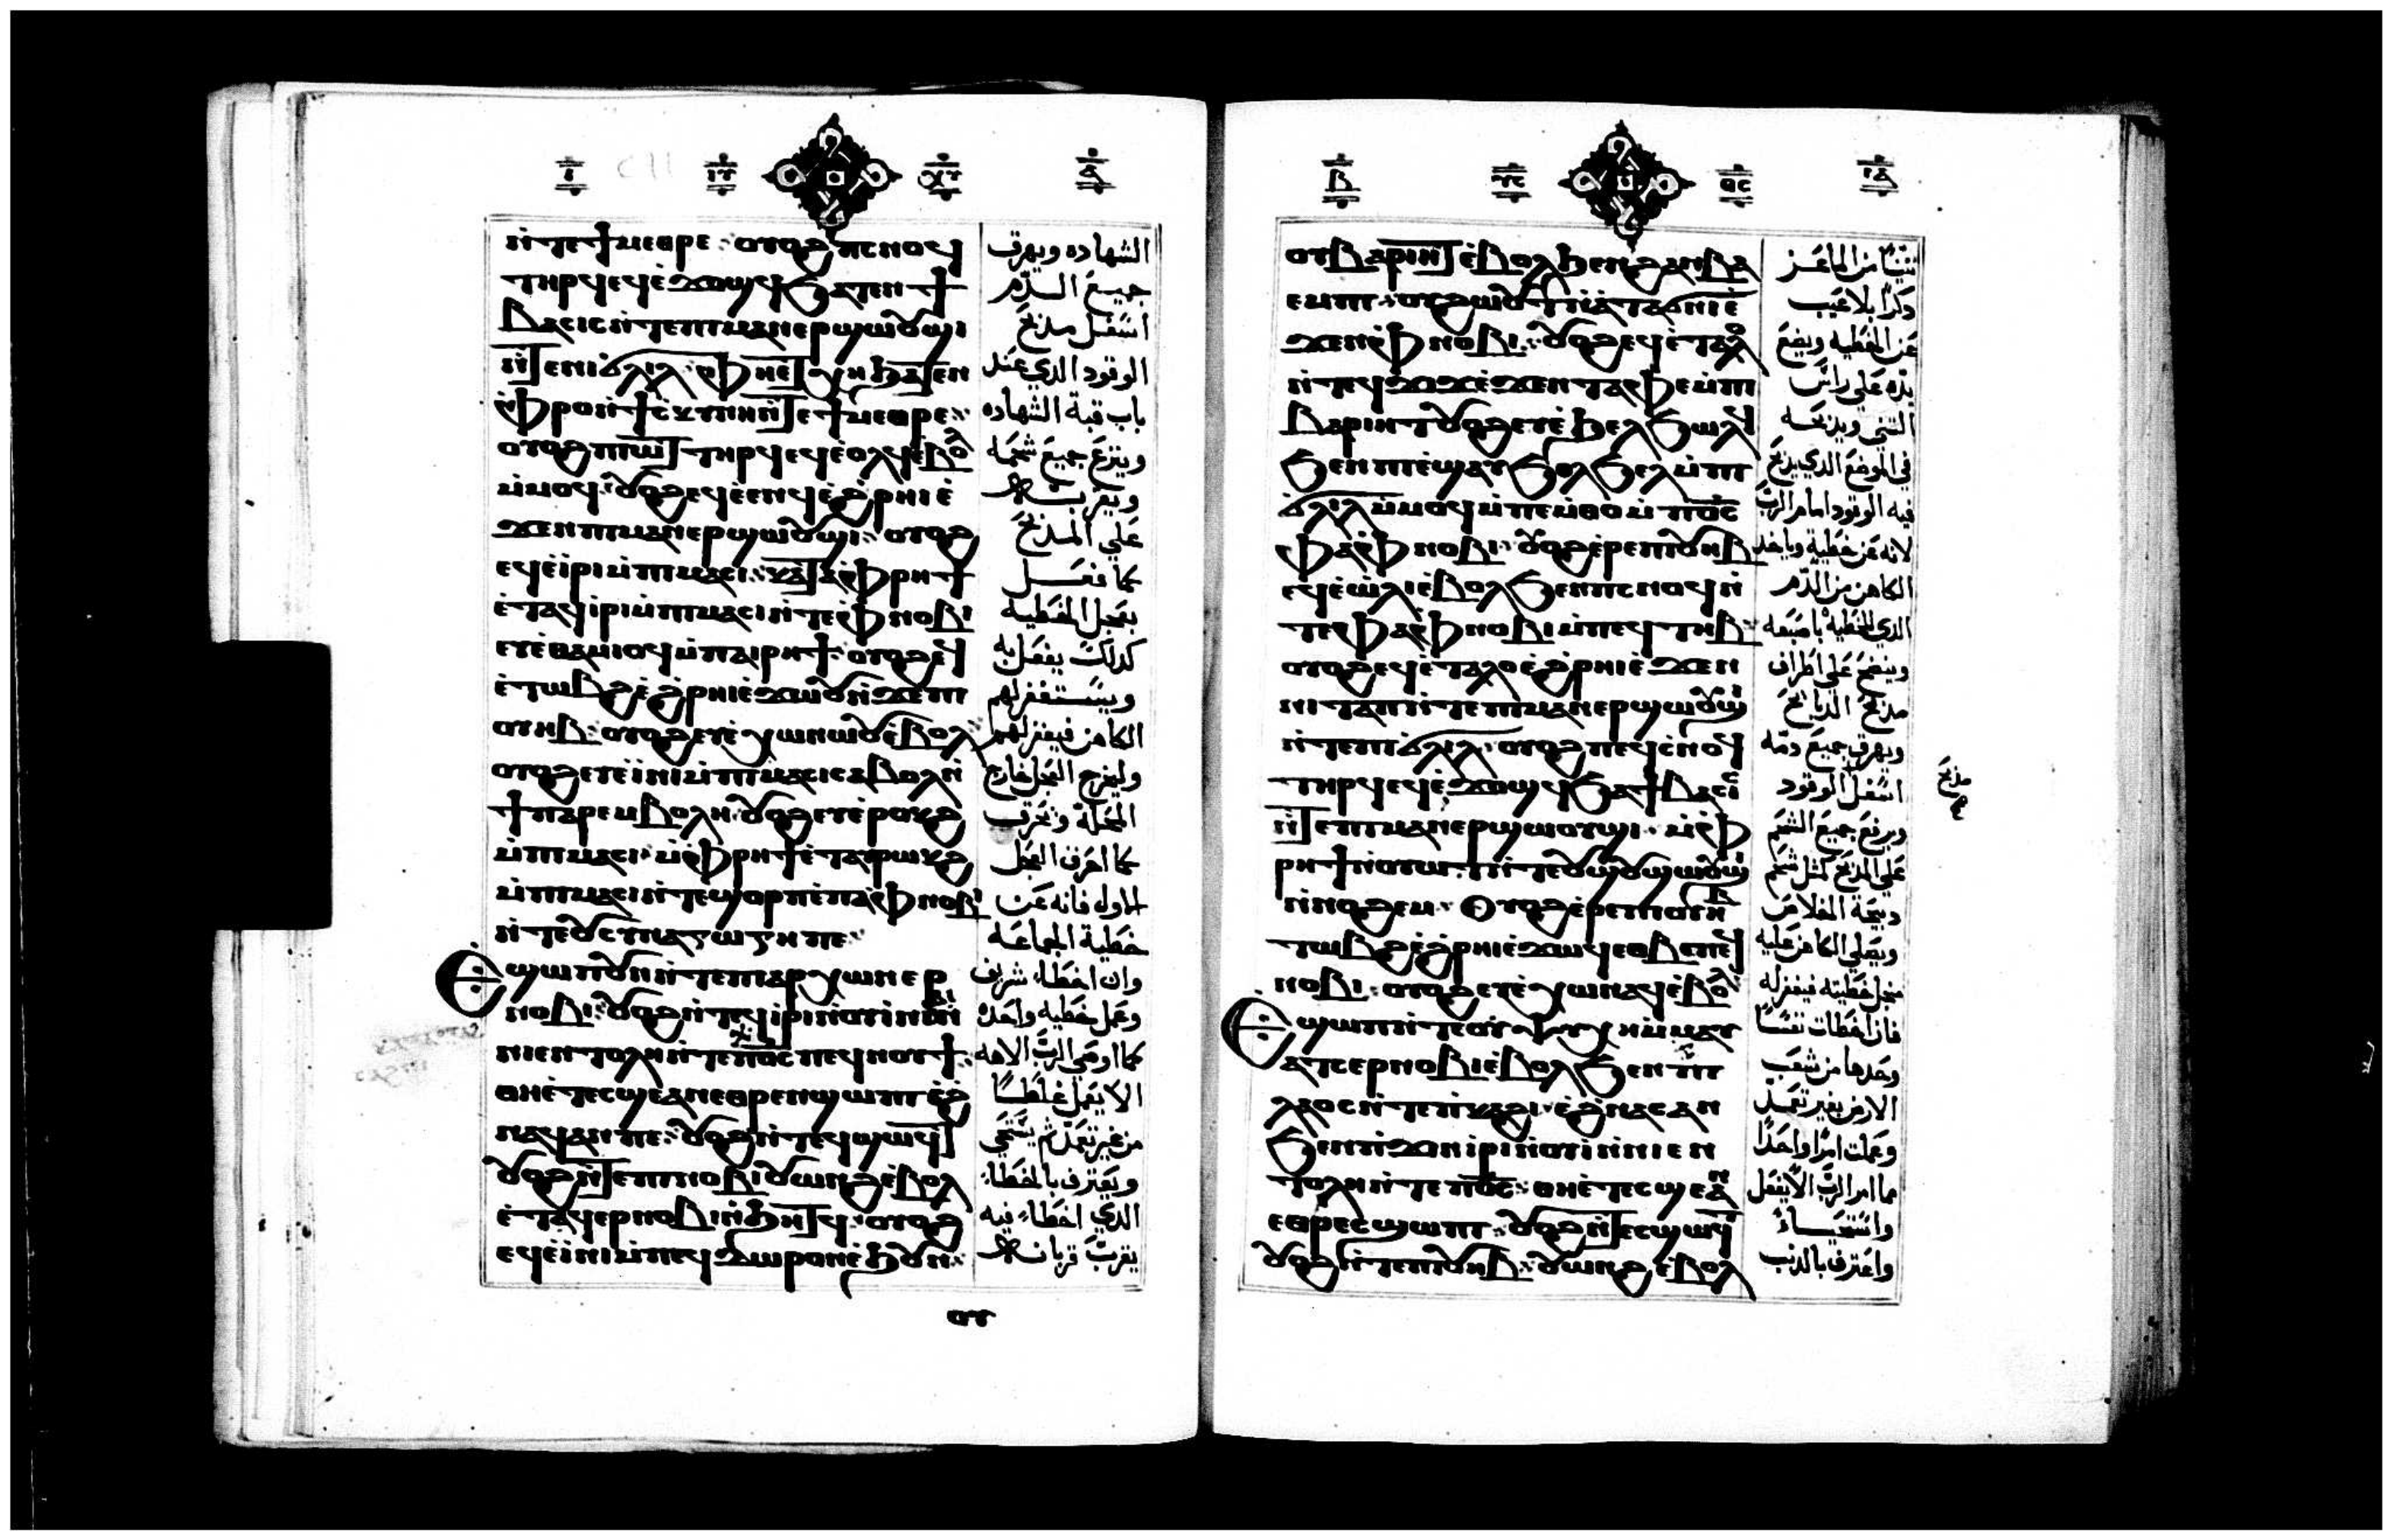 ⲛ̀ⲧⲉϯⲙⲉⲑⲣⲉ· ⲟⲩⲟϩ ⲡⲥⲛⲟϥ
ⲧⲏⲣϥ ⲉϥⲉ̀ϫⲟϣϥ ϧⲁⲧⲉⲛ ϯ
ⲃⲁⲥⲓⲥ ⲛ̀ⲧⲉ ⲡⲓⲙⲁⲛⲉⲣϣⲱⲟⲩϣⲓ
ⲛ̀ⲧⲉ ⲛⲓϭⲗⲓⲗ· ⲫⲏ ⲉⲧⲭⲏ ϧⲁⲧⲉⲛ
ⲫⲣⲟ ⲛ̀ϯⲥⲕⲩⲛⲏ ⲛ̀ⲧⲉ ϯⲙⲉⲑⲣⲉ·
ⲟⲩⲟϩ ⲡⲓⲱⲧ ⲧⲏⲣϥ ⲉϥⲉ̀ⲟⲗϥ ⲉⲃⲟⲗ
ⲙ̀ⲙⲟϥ· ⲟⲩⲟϩ ⲉϥⲉ̀ⲉⲛϥ ⲉ̀ϩⲣⲏⲓ ⲉ̀
ϫⲉⲛ ⲡⲓⲙⲁⲛⲉⲣϣⲱⲟⲩϣⲓ· ⲟⲩⲟϩ
ⲉϥⲉ̀ⲓⲣⲓ ⲙ̀ⲡⲓⲙⲁⲥⲓ· ⲕⲁⲧⲁ ⲫⲣⲏϯ
ⲉ̀ⲧⲁϥⲓⲣⲓ ⲙ̀ⲡⲓⲙⲁⲥⲓ ⲛ̀ⲧⲉ ⲫⲛⲟⲃⲓ
ⲉⲩⲉ̀ⲑⲁⲙⲓⲟϥ ⲙ̀ⲡⲁⲓⲣⲏϯ· ⲟⲩⲟϩ ⲉϥ
ⲉ̀ⲧⲱⲃϩ ⲉ̀ϩⲣⲏⲓ ⲉ̀ϫⲱⲟⲩ ⲛ̀ϫⲉ ⲡⲓ
ⲟⲩⲏⲃ· ⲟⲩⲟϩ ⲉⲩⲉ̀ⲭⲱ ⲛⲱⲟⲩ ⲉ̀ⲃⲟⲗ
ⲟⲩⲟϩ ⲉⲩⲉ̀ⲓⲛⲓ ⲙ̀ⲡⲓⲙⲁⲥⲓ ⲥⲁⲃⲟⲗ ⲛ̀
ϯⲡⲁⲣⲉⲙⲃⲟⲗⲏ· ⲟⲩⲟϩ ⲉⲩⲉ̀ⲣⲟⲕϩ
ⲙ̀ⲡⲓⲙⲁⲥⲓ· ⲙ̀ⲫⲣⲏϯ ⲉ̀ⲧⲁⲩⲣⲱⲕϩ
ⲙ̀ⲡⲓⲙⲁⲥⲓ ⲛ̀ⲧⲉ ϣⲟⲣⲡ ⲉ̀ⲡⲁ ⲫⲛⲟⲃⲓ
ⲛ̀ⲧⲉ ⲟⲩⲥⲩⲛⲁⲅⲱⲅⲏ ⲡⲉ·
Ⲉϣⲱⲡ ⲟⲩⲛ ⲛ̀ⲧⲉ ⲡⲓⲁⲣⲭⲱⲛ ⲉⲣ
ⲛⲟⲃⲓ· ⲟⲩⲟϩ ⲛ̀ⲧⲉϥⲓⲣⲓ ⲛ̀ⲟⲩⲓ ⲛ̀ⲛⲓⲃⲓ
ⲛⲓⲉⲛⲧⲟⲗⲏ ⲛ̀ⲧⲉ ⲡϭⲥ ⲡⲉϥⲛⲟⲩϯ·
ⲑⲏ ⲉ̀ⲧⲉⲥϣⲉ ⲁⲛ ⲉⲑⲣⲉⲛϣⲱⲡⲓ ⲉ̀ϩ
ⲛⲁϥ ⲁⲛ ⲡⲉ· ⲟⲩⲟϩ ⲛ̀ⲧⲉϥϣⲱϥⲧ
ⲟⲩⲟϩ ⲛ̀ⲧⲉ ⲡⲓⲛⲟⲃⲓ ⲟⲩⲱⲛϩ ⲉ̀ⲃⲟⲗ
ⲉ̀ⲧⲁϥⲉⲣⲛⲟⲃⲓ ⲛ̀ϧⲏⲧϥ· ⲟⲩⲟϩ
ⲉϥⲉ̀ⲓⲛⲓ ⲙ̀ⲡⲉϥⲇⲱⲣⲟⲛ ⲉ̀ϧⲟⲩⲛ·
ⲟⲩ
الشهاده ويهرق
جميع الدم
اسفل مذبح
الوقود الذي عند
باب قبة الشهاده
وينزع جميع شحمه
ويقربه
علي المذبح
كما فعل
بعجل الخطيه
كذلك يفعل به
ويستغفر لهم
الكاهن فيغفر لهم
وليخرج العجل خارج
المحلة ويحرق
كما احرق العجل
الاول فانه عن
خطية الجماعه
وان اخطاء شريف
وعمل خطيه واحده
كما اوصي الرب الاهه
الا يفعل غلطا
من غير تعمد ثم يتنحي
ويعترف بالخطاء
الذي اخطاء فيه
يقرب قربانه
ⲟⲩⲃⲁⲣⲏⲓⲧ ⲉ̀ⲃⲟⲗ ϧⲉⲛ ϩⲁⲛⲃⲁ
ⲉⲙⲡⲓ· ⲟⲩϩⲱⲟⲩⲧ ⲛ̀ⲁⲧⲁϭⲛⲓ ⲉ̀
ϫⲉⲛ ⲫⲛⲟⲃⲓ· ⲟⲩⲟϩ ⲉϥⲉ̀ⲧⲁⲗⲟ
ⲛ̀ⲧⲉϥϫⲓϫ ⲉ̀ϫⲉⲛ ⲧⲁⲫⲉ ⲙ̀ⲡⲓ
ⲃⲁⲣⲏⲓⲧ ⲟⲩⲟϩ ⲉⲩⲉ̀ϧⲉⲗϧⲱⲗϥ
ϧⲉⲛ ⲡⲓⲙⲁ ⲉ̀ϣⲁⲩϧⲟⲗϧⲉⲗ ⲙ̀ⲡⲓ
ϭⲗⲓⲗ ⲙ̀ⲙⲟϥ ⲙ̀ⲡⲉⲙⲑⲟ ⲙ̀ⲡϭⲥ
ⲫⲁ ⲫⲛⲟⲃⲓ· ⲟⲩⲟϩ ⲉ̀ⲣⲉ ⲡⲓⲟⲩⲏⲃ
ⲉϥⲉ̀ⲱ̀ⲗⲓ ⲉ̀ⲃⲟⲗ ϧⲉⲛ ⲡⲥⲛⲟϥ ⲛ̀
ⲧⲉ ⲫⲁ ⲫⲛⲟⲃⲓ ⲙ̀ⲡⲉϥⲧⲏⲃ·
ⲟⲩⲟϩ ⲉϥⲉ̀ⲧⲁⲗⲟ ⲉ̀ϩⲣⲏⲓ ⲉ̀ϫⲉⲛ
ⲛⲓⲧⲁⲡ ⲛ̀ⲧⲉ ⲡⲓⲙⲁⲛⲉⲣϣⲱⲟⲩϣⲓ
ⲛ̀ⲧⲉ ⲡⲓϭⲗⲓⲗ· ⲟⲩⲟϩ ⲡⲉϥⲥⲛⲟϥ
ⲧⲏⲣϥ ⲉϥⲉ̀ϫⲟϣϥ ϧⲁ ϯⲃⲁⲥⲓⲥ
ⲛ̀ⲧⲉ ⲡⲓⲙⲁⲛⲉⲣϣⲱⲟⲩϣⲓ· ⲙ̀ⲫ
ⲣⲏϯ ⲛ̀ⲟⲩⲱⲧ ⲛ̀ⲧⲉ ⲟⲩϣⲟⲩϣⲱⲟⲩϣⲓ
ⲛ̀ⲛⲟϩⲉⲙ· Ⲟⲩⲟϩ ⲉ̀ⲣⲉ ⲡⲓⲟⲩⲏⲃ
ⲧⲱⲃϩ ⲉ̀ϩⲣⲏⲓ ⲉ̀ϫⲱϥ ⲉⲑⲃⲉ ⲡⲉϥ
ⲛⲟⲃⲓ· ⲟⲩⲟϩ ⲉⲩⲉ̀ⲭⲱ ⲛⲁϥ ⲉ̀ⲃⲟⲗ
Ⲉϣⲱⲡ ⲛ̀ⲧⲉ ⲟⲩⲯⲩⲭⲏ ⲙ̀ⲙⲁⲩ
ⲁⲧⲥ ⲉⲣⲛⲟⲃⲓ ⲉ̀ⲃⲟⲗ ϧⲉⲛ ⲡⲓ
ⲗⲁⲟⲥ ⲛ̀ⲧⲉ ⲡ̀ⲕⲁϩⲓ· ⲉ̀ϩⲛⲁⲥ ⲁⲛ
ϧⲉⲛ ⲡ̀ϫⲓⲛⲓⲣⲓ ⲛ̀ⲟⲩⲓ ⲛ̀ⲛⲓⲉⲛ
ⲧⲟⲗⲏ ⲛ̀ⲧⲉ ⲡϭⲥ· ⲑⲏ ⲉ̀ⲧⲉⲥϣⲉ ⲁⲛ
ⲉⲑⲣⲉⲥϣⲱⲡⲓ· ⲟⲩⲟϩ ⲛ̀ⲧⲉⲥϣⲱϥⲧ
ⲟⲩⲟϩ ⲛ̀ⲧⲉ ⲡⲓⲟⲩⲏⲃ· ⲟⲩⲱⲛϩ ⲉ̀ⲃⲟⲗ
تيسا من الماعز
ذكرا بلا عيب
عن الخطيه ويضع
يده علي راس
التيس ويذبحه
في الموضع الذي يذبح
فيه الوقود امام الرب
لانه عن خطية وياخذ
الكاهن من الدم
الذي للخطيه باصبعه
وينضح علي اطراف
مذبح الذبايح
ويهرق جميع دمه
اسفل الوقود
ويرفع جميع الشحم
علي المذبح كمثل شحم
ذبيحة الخلاص
ويصلي الكاهن عليه
من اجل خطيته فيغفر له
فان اخطات نفسا
وحدها من شعب
الارض بغير تعمد
وعملت امرا واحدا
مما امر الرب الا يفعل
واعترف بالذنب
مذبح